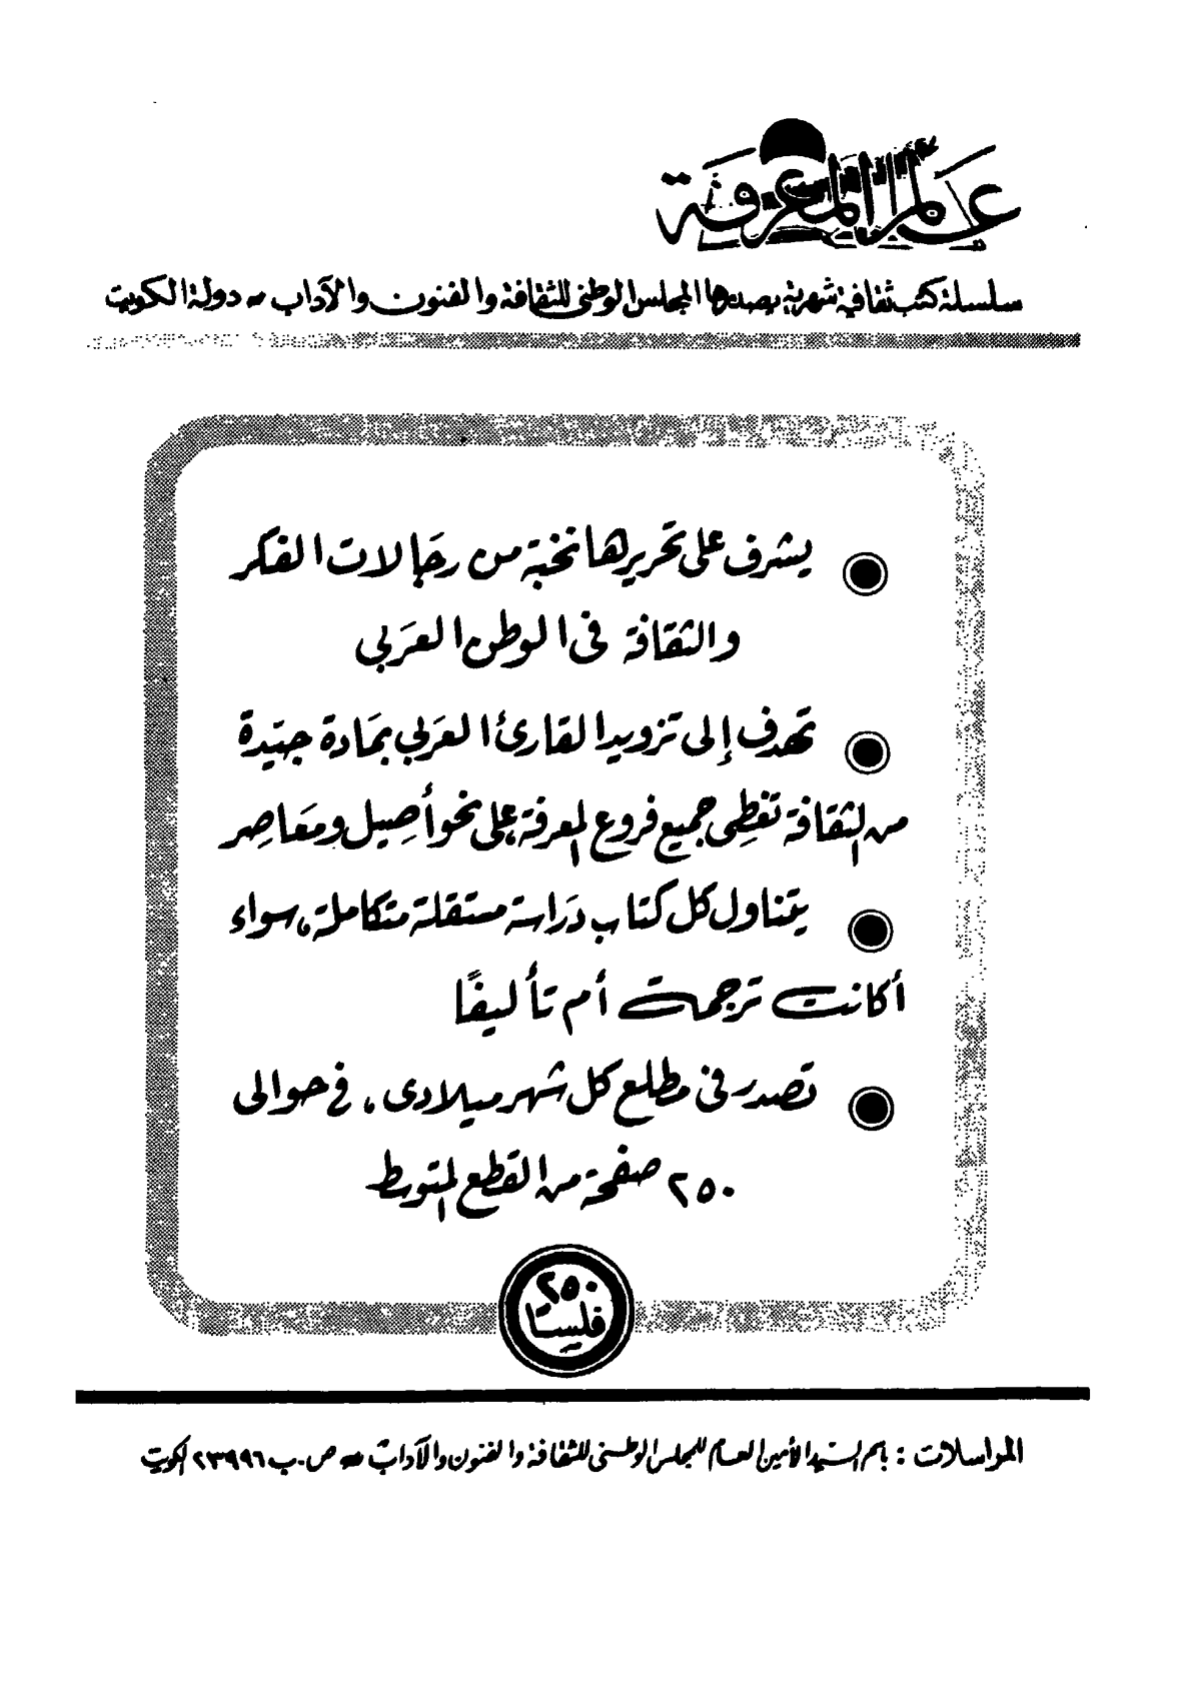 عالم المعرفة
سلسلة كتب ثقافية شهرية يصدرها المجلس الوطني للثقافة والفنون والآداب - دولة الكويت
يشرف على تحريرها نخبة من رجالات الفكر
والثقافة فى الوطن العربي
تهدف إلى تزويد القارئ العربي بمادة جيّدة
من الثقافة تغطى جميع فروع المعرفة على نحو أصيل ومعاصر
يتناول كل كتاب دراسة مستقلة متكاملة، سواء
أكانت ترجمة أم تأليفًا
تصدر فى مطلع كل شهر ميلادى، في حوالى
٢٥٠ صفحة من القطع المتوسط
٢٥٠
فلسًا
المراسلات : باسم السيد الأمين العام للمجلس الوطني للثقافة والفنون والآداب - ص.ب ٢٣٩٩٦ الكويت